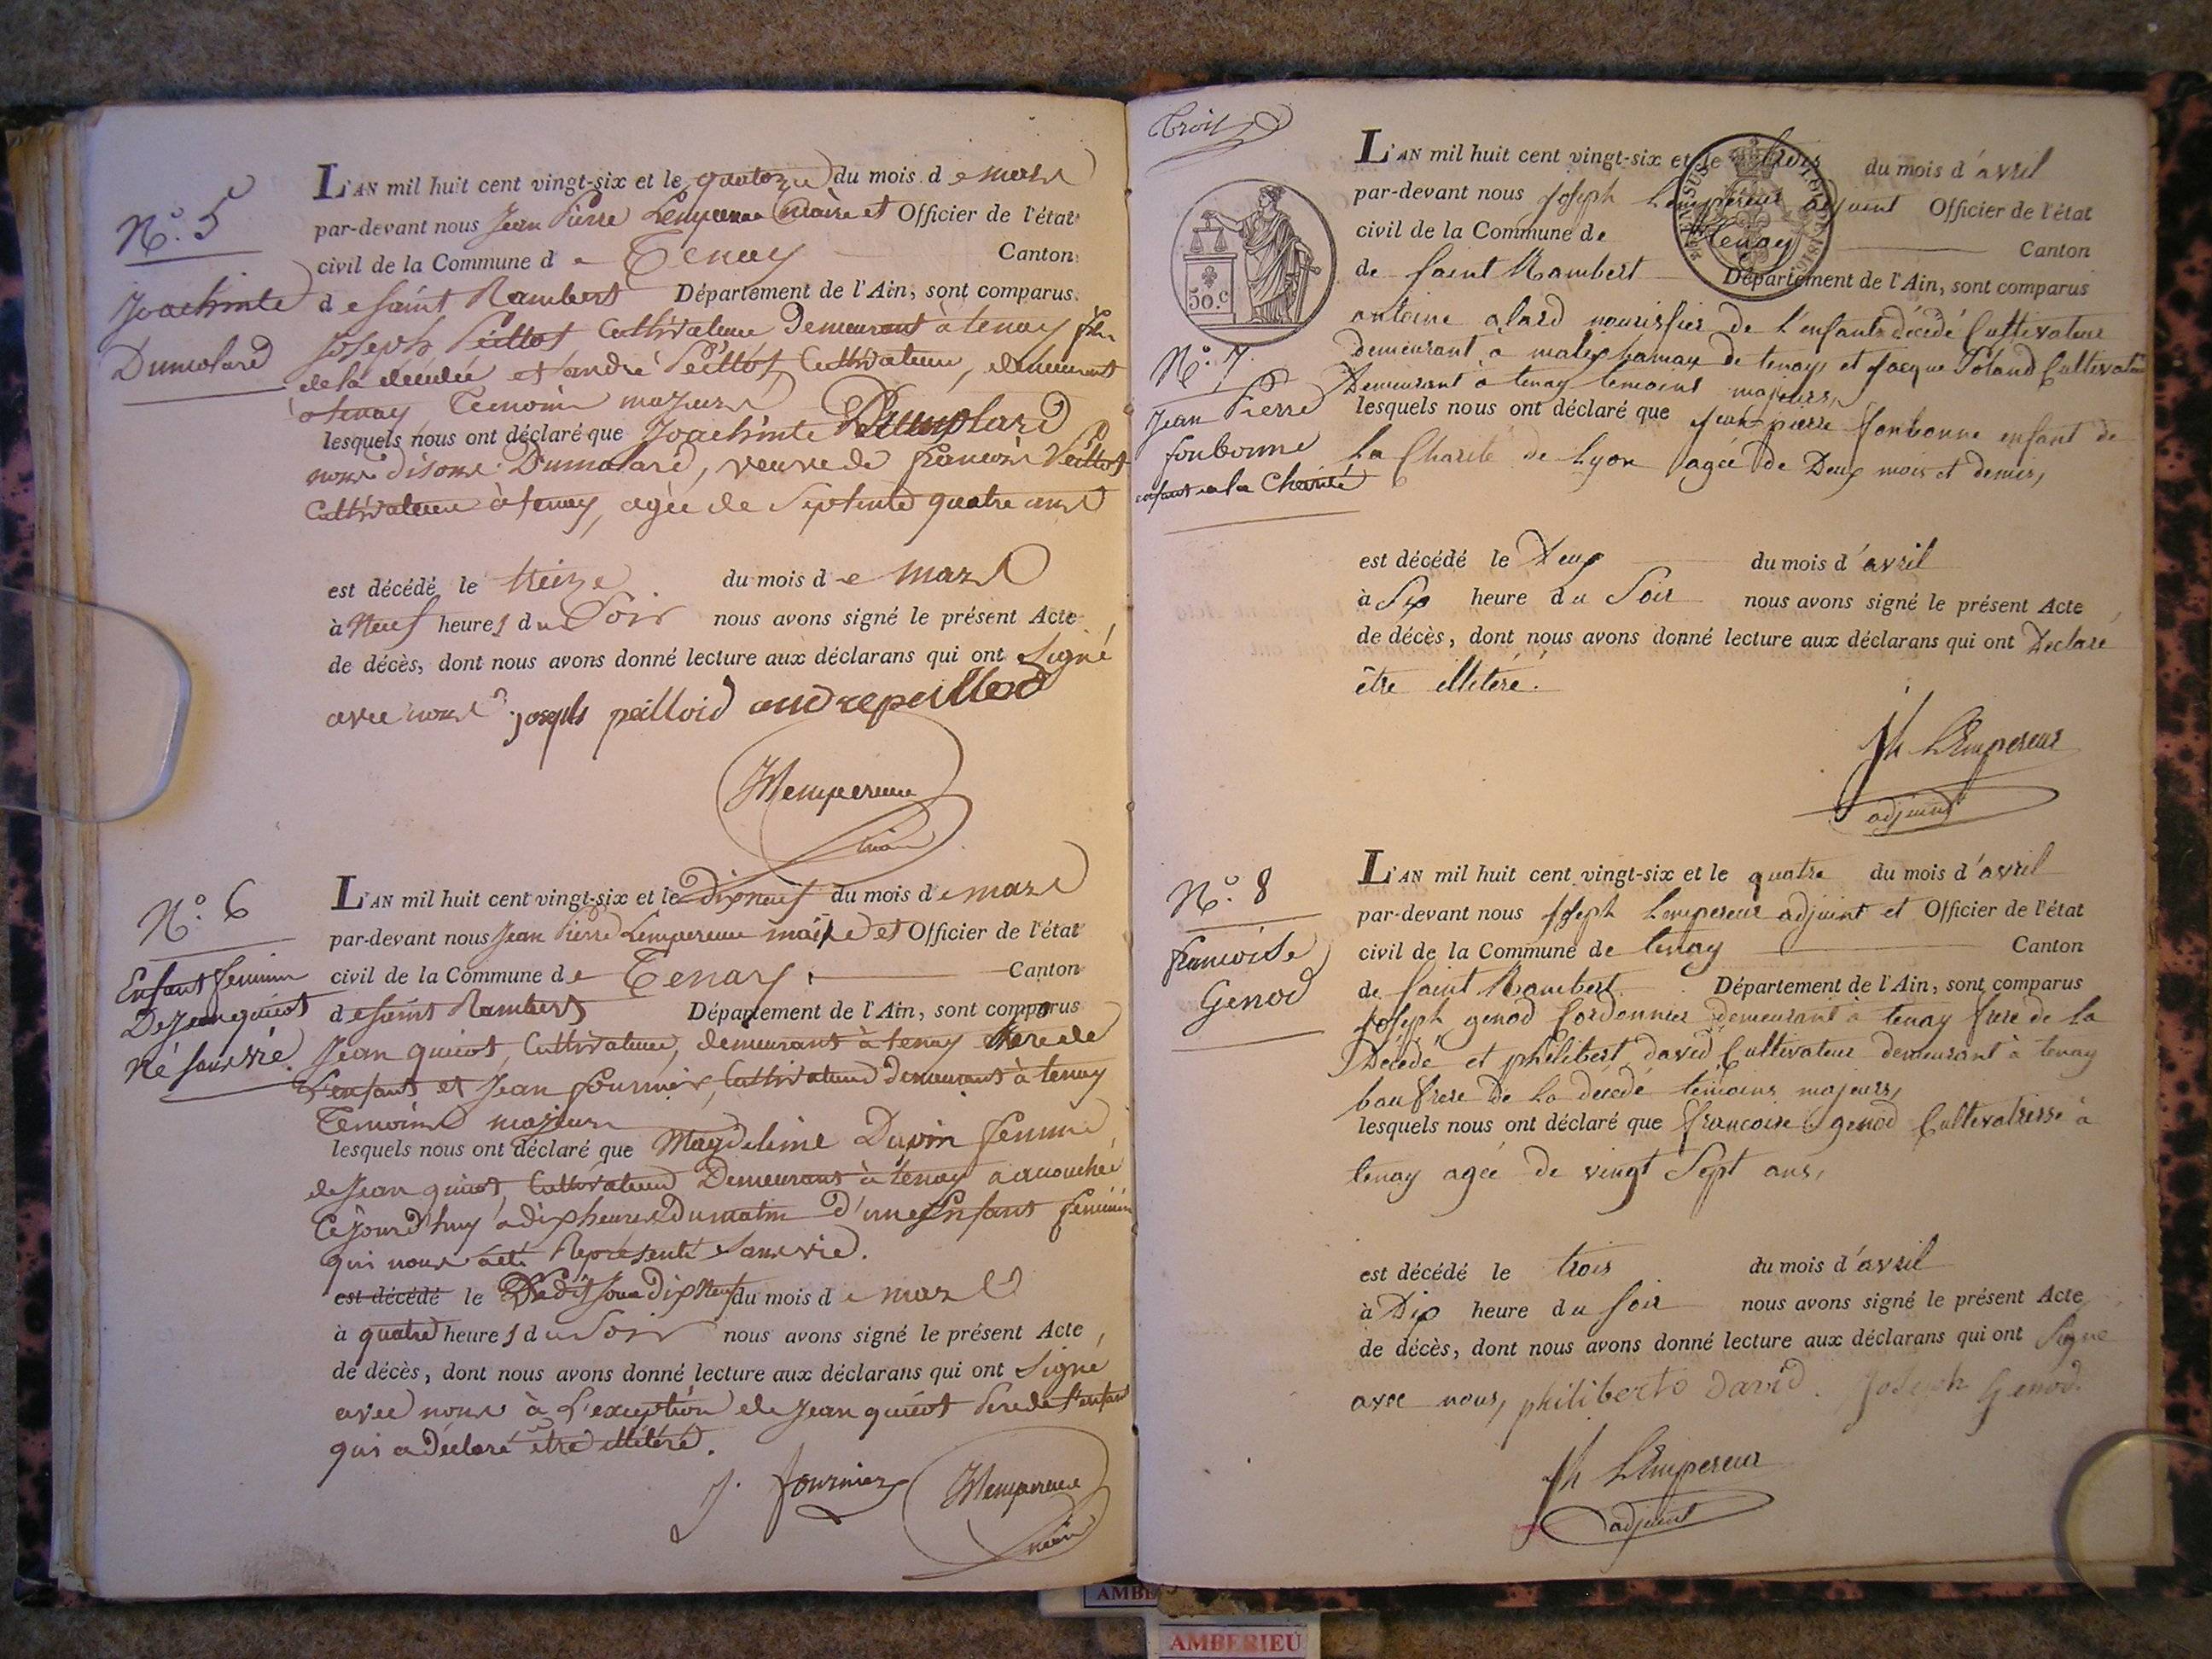 N.° 5
Joachinte
Dumolard
L'AN mil huit cent vingt-six et le quatorze du mois de mars
par-devant nous Jean Pierre Lempereur maire et Officier de l'état
civil de la Commune de Tenay Canton
de saint Rambert Département de l'Ain, sont comparus
Joseph Peillot Cultivateur Demeurant à tenay fils
de la décédée et andré Peillot Cultivateur, demeurant
à tenay Temoins majeurs
lesquels nous ont déclaré que Joachinte Dumolard
nous disons Dumolard, veuve de francois Peillot
Cultivateur à tenay, agée de Septente quatre ans
est décédé le treize du mois de mars
à Neuf heures du Soir nous avons signé le présent Acte
de décès, dont nous avons donné lecture aux déclarans qui ont Signé
avec nous. joseph peilloid andre peillod
JPLempereur
maire
N.° 6
Enfant feminin
De Jean guicot
Né sans vie.
L'AN mil huit cent vingt-six et le Dixneuf du mois de mars
par-devant nous Jean Pierre Lempereur maire et Officier de l'état
civil de la Commune de Tenay Canton
de saint Rambert Département de l'Ain, sont comparus
Jean guicot, Cultivateur, demeurant à tenay Pere de
L'enfant et Jean fournier, Cultivateur Demeurant à tenay
Temoins majeurs
lesquels nous ont déclaré que Magdeleine Dupin femme
de Jean guicot, Cultivateur Demeurant à tenay a accouchée
Cejourd'huy à dix heures Du matin D'une Enfant feminin
qui nous a été Représenté sans vie.
est décédé le Dedit Jour dix Neuf du mois de mars
à quatre heures du Soir nous avons signé le présent Acte,
de décès, dont nous avons donné lecture aux déclarans qui ont Signé
avec nous à L'exception de Jean guicot Pere de l'enfant
qui a déclaré être illétéré.
J. fournier JPLempereur
maire
trois
50.c
N.° 7.
Jean Pierre
fonbonne
enfant a la Charité
L'AN mil huit cent vingt-six et le trois du mois d'avril
par-devant nous Joseph Lempereur adjoint Officier de l'état
civil de la Commune de tenay Canton
de Saint Rambert Département de l'Ain, sont comparus
antoine alard nourissier de L'enfant décédé Cultivateur
demeurant a malix hamau de tenay, et Jacque Poland Cultivateur
Demeurant à tenay temoins majeurs,
lesquels nous ont déclaré que Jean pierre fonbonne enfant de
La Charité de Lyon agée de Deux mois et demis,
est décédé le Deux du mois d'avril
à Six heure du Soir nous avons signé le présent Acte
de décès, dont nous avons donné lecture aux déclarans qui ont Declaré
être illetéré.
Jh LEmpereur
adjoint
N.° 8
francoise
Genod
L'AN mil huit cent vingt-six et le quatre du mois d'avril
par-devant nous Joseph Lempereur adjoint et Officier de l'état
civil de la Commune de tenay Canton
de Saint Rambert Département de l'Ain, sont comparus
Joseph genod Cordonnier demeurant à tenay frere de la
Décédé et philibert david Cultivateur demeurant à tenay
beaufrere de La decedé temoins majeurs,
lesquels nous ont déclaré que francoise genod Cultivatrisse à
tenay agée de vingt Sept ans,
est décédé le trois du mois d'avril
à Dix heure du soir nous avons signé le présent Acte
de décès, dont nous avons donné lecture aux déclarans qui ont Signe
avec nous, philiberto David. Joseph Genod.
Jh LEmpereur
adjoint
AMBE
AMBERIEU